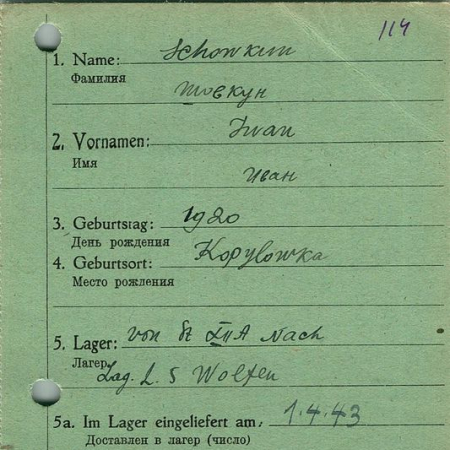 114
1. Name: Schowkun
Фамилия
Шовкун
2. Vornamen: Iwan
Имя
Иван
3. Geburtstag: 1920
День рождения
4. Geburtsort: Kopylowka
Место рождения
5. Lager: von St XII A Nach
Лагер Lag. L. S Wolfen
5a. Im Lager eingeliefert am: 1.4.43
Доставлен в лагер (число)